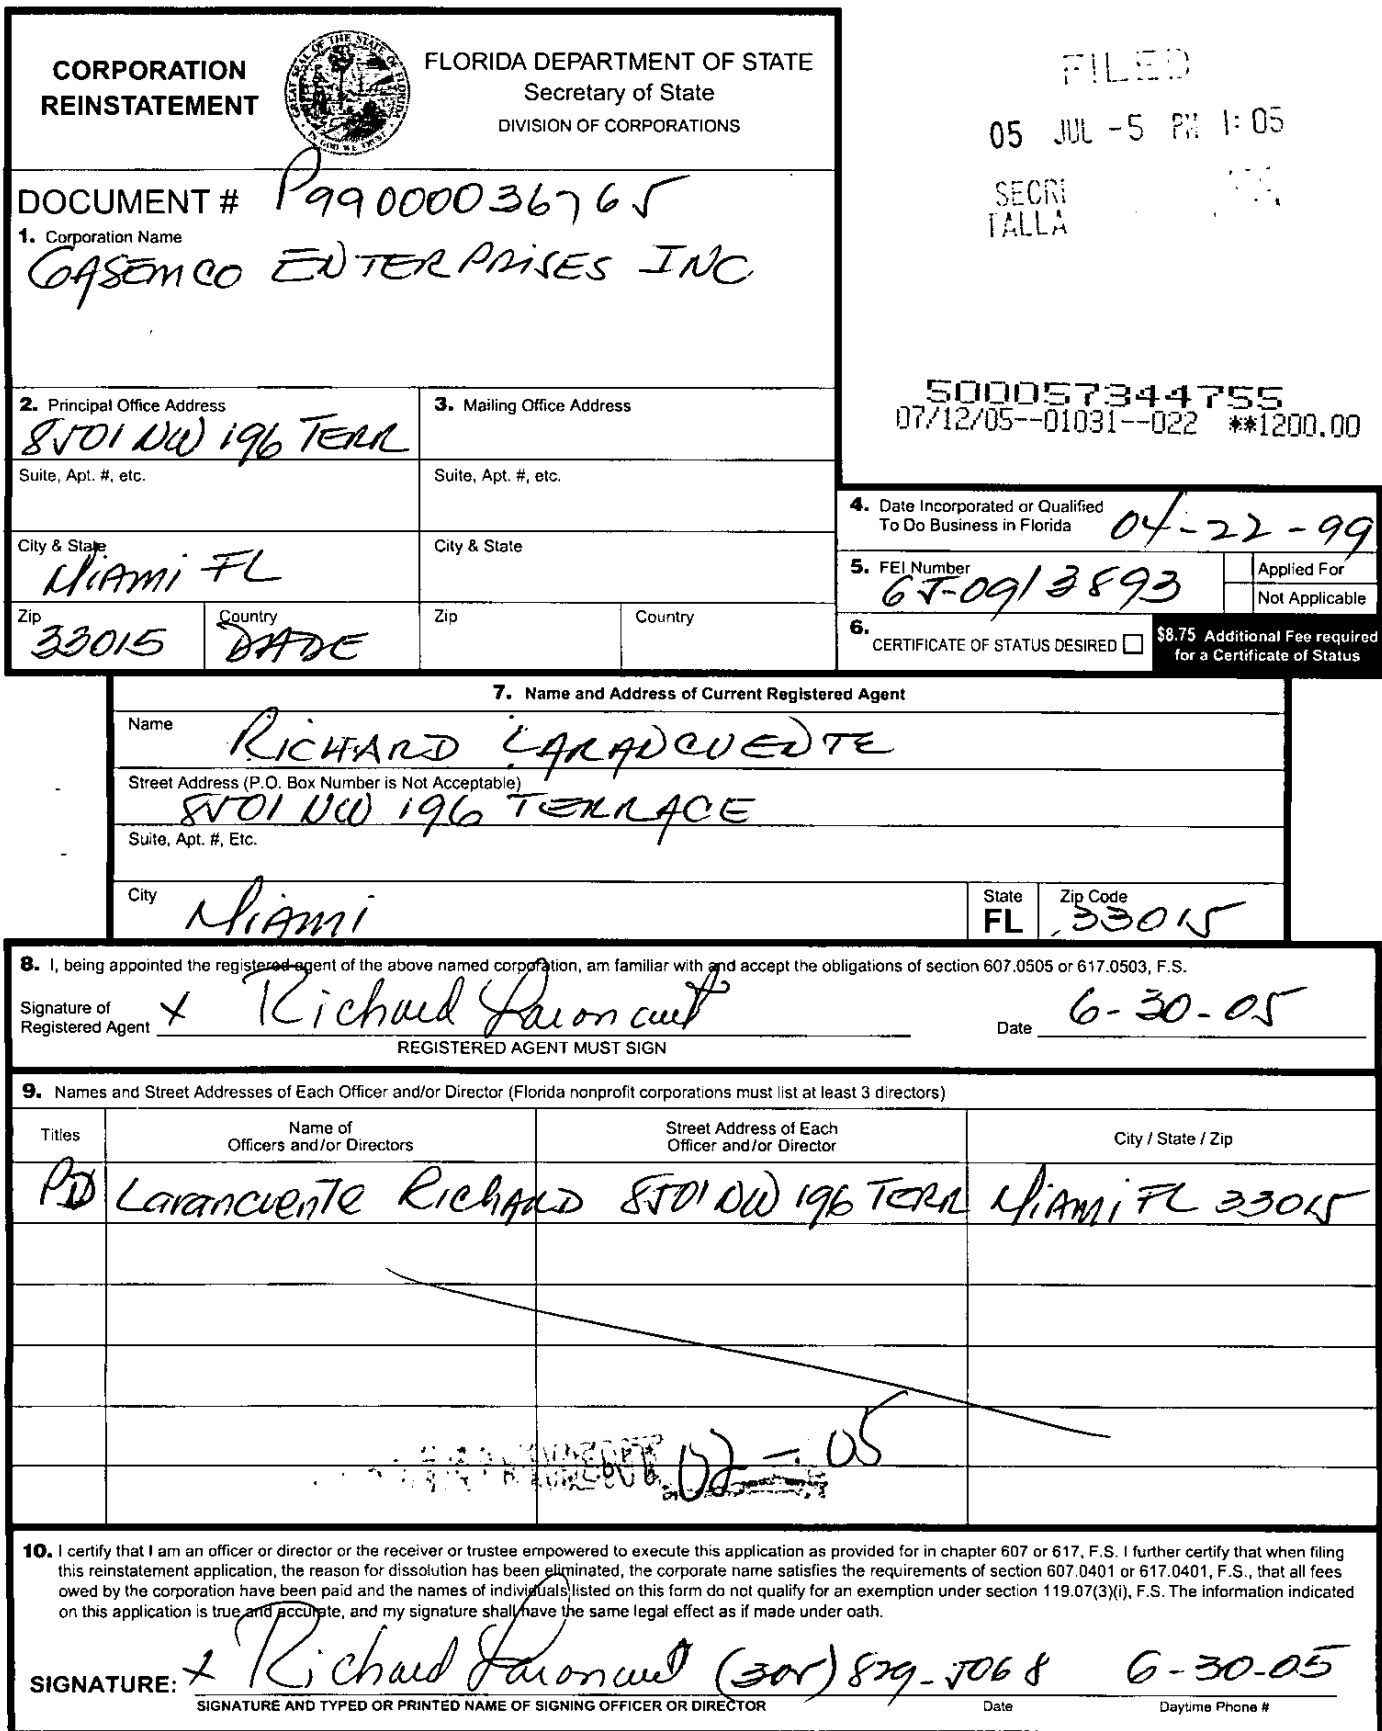 CORPORATION
REINSTATEMENT
GREAT SEAL OF THE STATE OF FLORIDA
IN GOD WE TRUST
FLORIDA DEPARTMENT OF STATE
Secretary of State
DIVISION OF CORPORATIONS
FILED
05 JUL -5 PM 1:05
SECRE
TALLA
DOCUMENT # P99000036765
1. Corporation Name
GASEMCO ENTERPRISES INC
500057344755
07/12/05--01031--022 **1200.00
2. Principal Office Address
8501 NW 196 TERR
3. Mailing Office Address
Suite, Apt. #, etc.
Suite, Apt. #, etc.
City & State
Miami FL
City & State
Zip
33015
Country
DADE
Zip
Country
4. Date Incorporated or Qualified
To Do Business in Florida 04-22-99
5. FEI Number
65-0913893
Applied For
Not Applicable
6. CERTIFICATE OF STATUS DESIRED
$8.75 Additional Fee required
for a Certificate of Status
7. Name and Address of Current Registered Agent
Name
RICHARD LARANCUENTE
Street Address (P.O. Box Number is Not Acceptable)
8501 NW 196 TERRACE
Suite, Apt. #, Etc.
City
Miami
State
FL
Zip Code
33015
8. I, being appointed the registered agent of the above named corporation, am familiar with and accept the obligations of section 607.0505 or 617.0503, F.S.
Signature of
Registered Agent x Richard Laroncuet
Date 6-30-05
REGISTERED AGENT MUST SIGN
9. Names and Street Addresses of Each Officer and/or Director (Florida nonprofit corporations must list at least 3 directors)
Titles
Name of
Officers and/or Directors
Street Address of Each
Officer and/or Director
City / State / Zip
PD Larancuente RICHARD 8501 NW 196 TERR Miami FL 33015
02-05
10. I certify that I am an officer or director or the receiver or trustee empowered to execute this application as provided for in chapter 607 or 617, F.S. I further certify that when filing
this reinstatement application, the reason for dissolution has been eliminated, the corporate name satisfies the requirements of section 607.0401 or 617.0401, F.S., that all fees
owed by the corporation have been paid and the names of individuals listed on this form do not qualify for an exemption under section 119.07(3)(i), F.S. The information indicated
on this application is true and accurate, and my signature shall have the same legal effect as if made under oath.
SIGNATURE: x Richard Laroncuet (305) 829-5068 6-30-05
SIGNATURE AND TYPED OR PRINTED NAME OF SIGNING OFFICER OR DIRECTOR
Date
Daytime Phone #